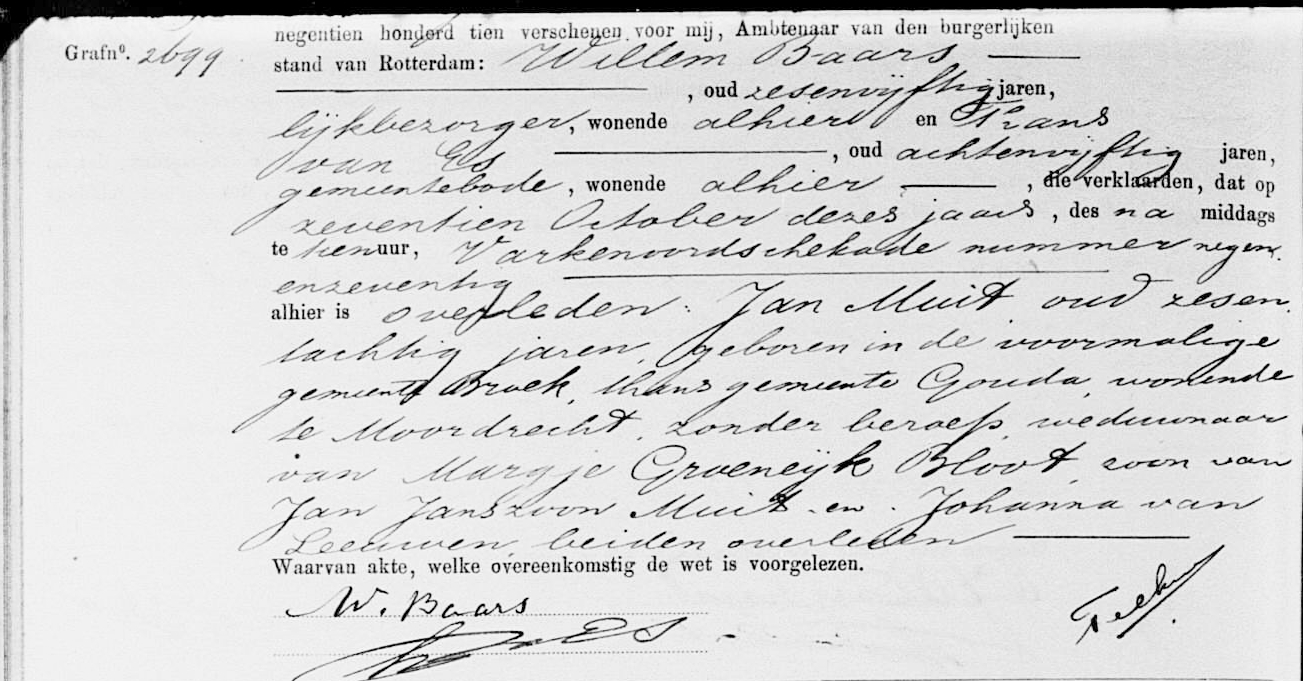 negentien honderd tien verschenen voor mij, Ambtenaar van den burgerlijken
Grafn⁰. 2699
stand van Rotterdam: Willem Baars
, oud zesenvijftig jaren,
lijkbezorger, wonende alhier en Frans
van Es, oud achtenvijftig jaren,
gemeentebode, wonende alhier, die verklaarden, dat op
zeventien October dezes jaars, des na middags
te tien uur, Varkenoordschekade nummer negen
enzeventig
alhier is overleden: Jan Muit oud zesen
tachtig jaren, geboren in de voormalige
gemeente Broek, thans gemeente Gouda, wonende
te Moordrecht, zonder beroep, weduwnaar
van Margje Groeneijk Bloot, zoon van
Jan Janszoon Muit en Johanna van
Leeuwen, beiden overleden
Waarvan akte, welke overeenkomstig de wet is voorgelezen.
W. Baars